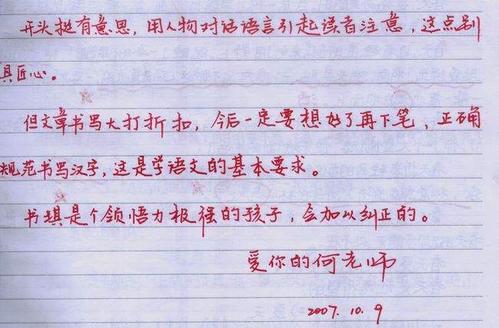 开头挺有意思，用人物对话语言引起读者注意，这点别
具匠心。
但文章书写大打折扣，今后一定要想好了再下笔，正确
规范书写汉字，这是学语文的基本要求。
书琪是个领悟力极强的孩子，会加以纠正的。
爱你的何老师
2007.10.9